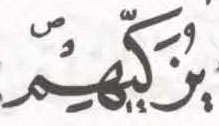 يُزَكِّيهِمْ ص